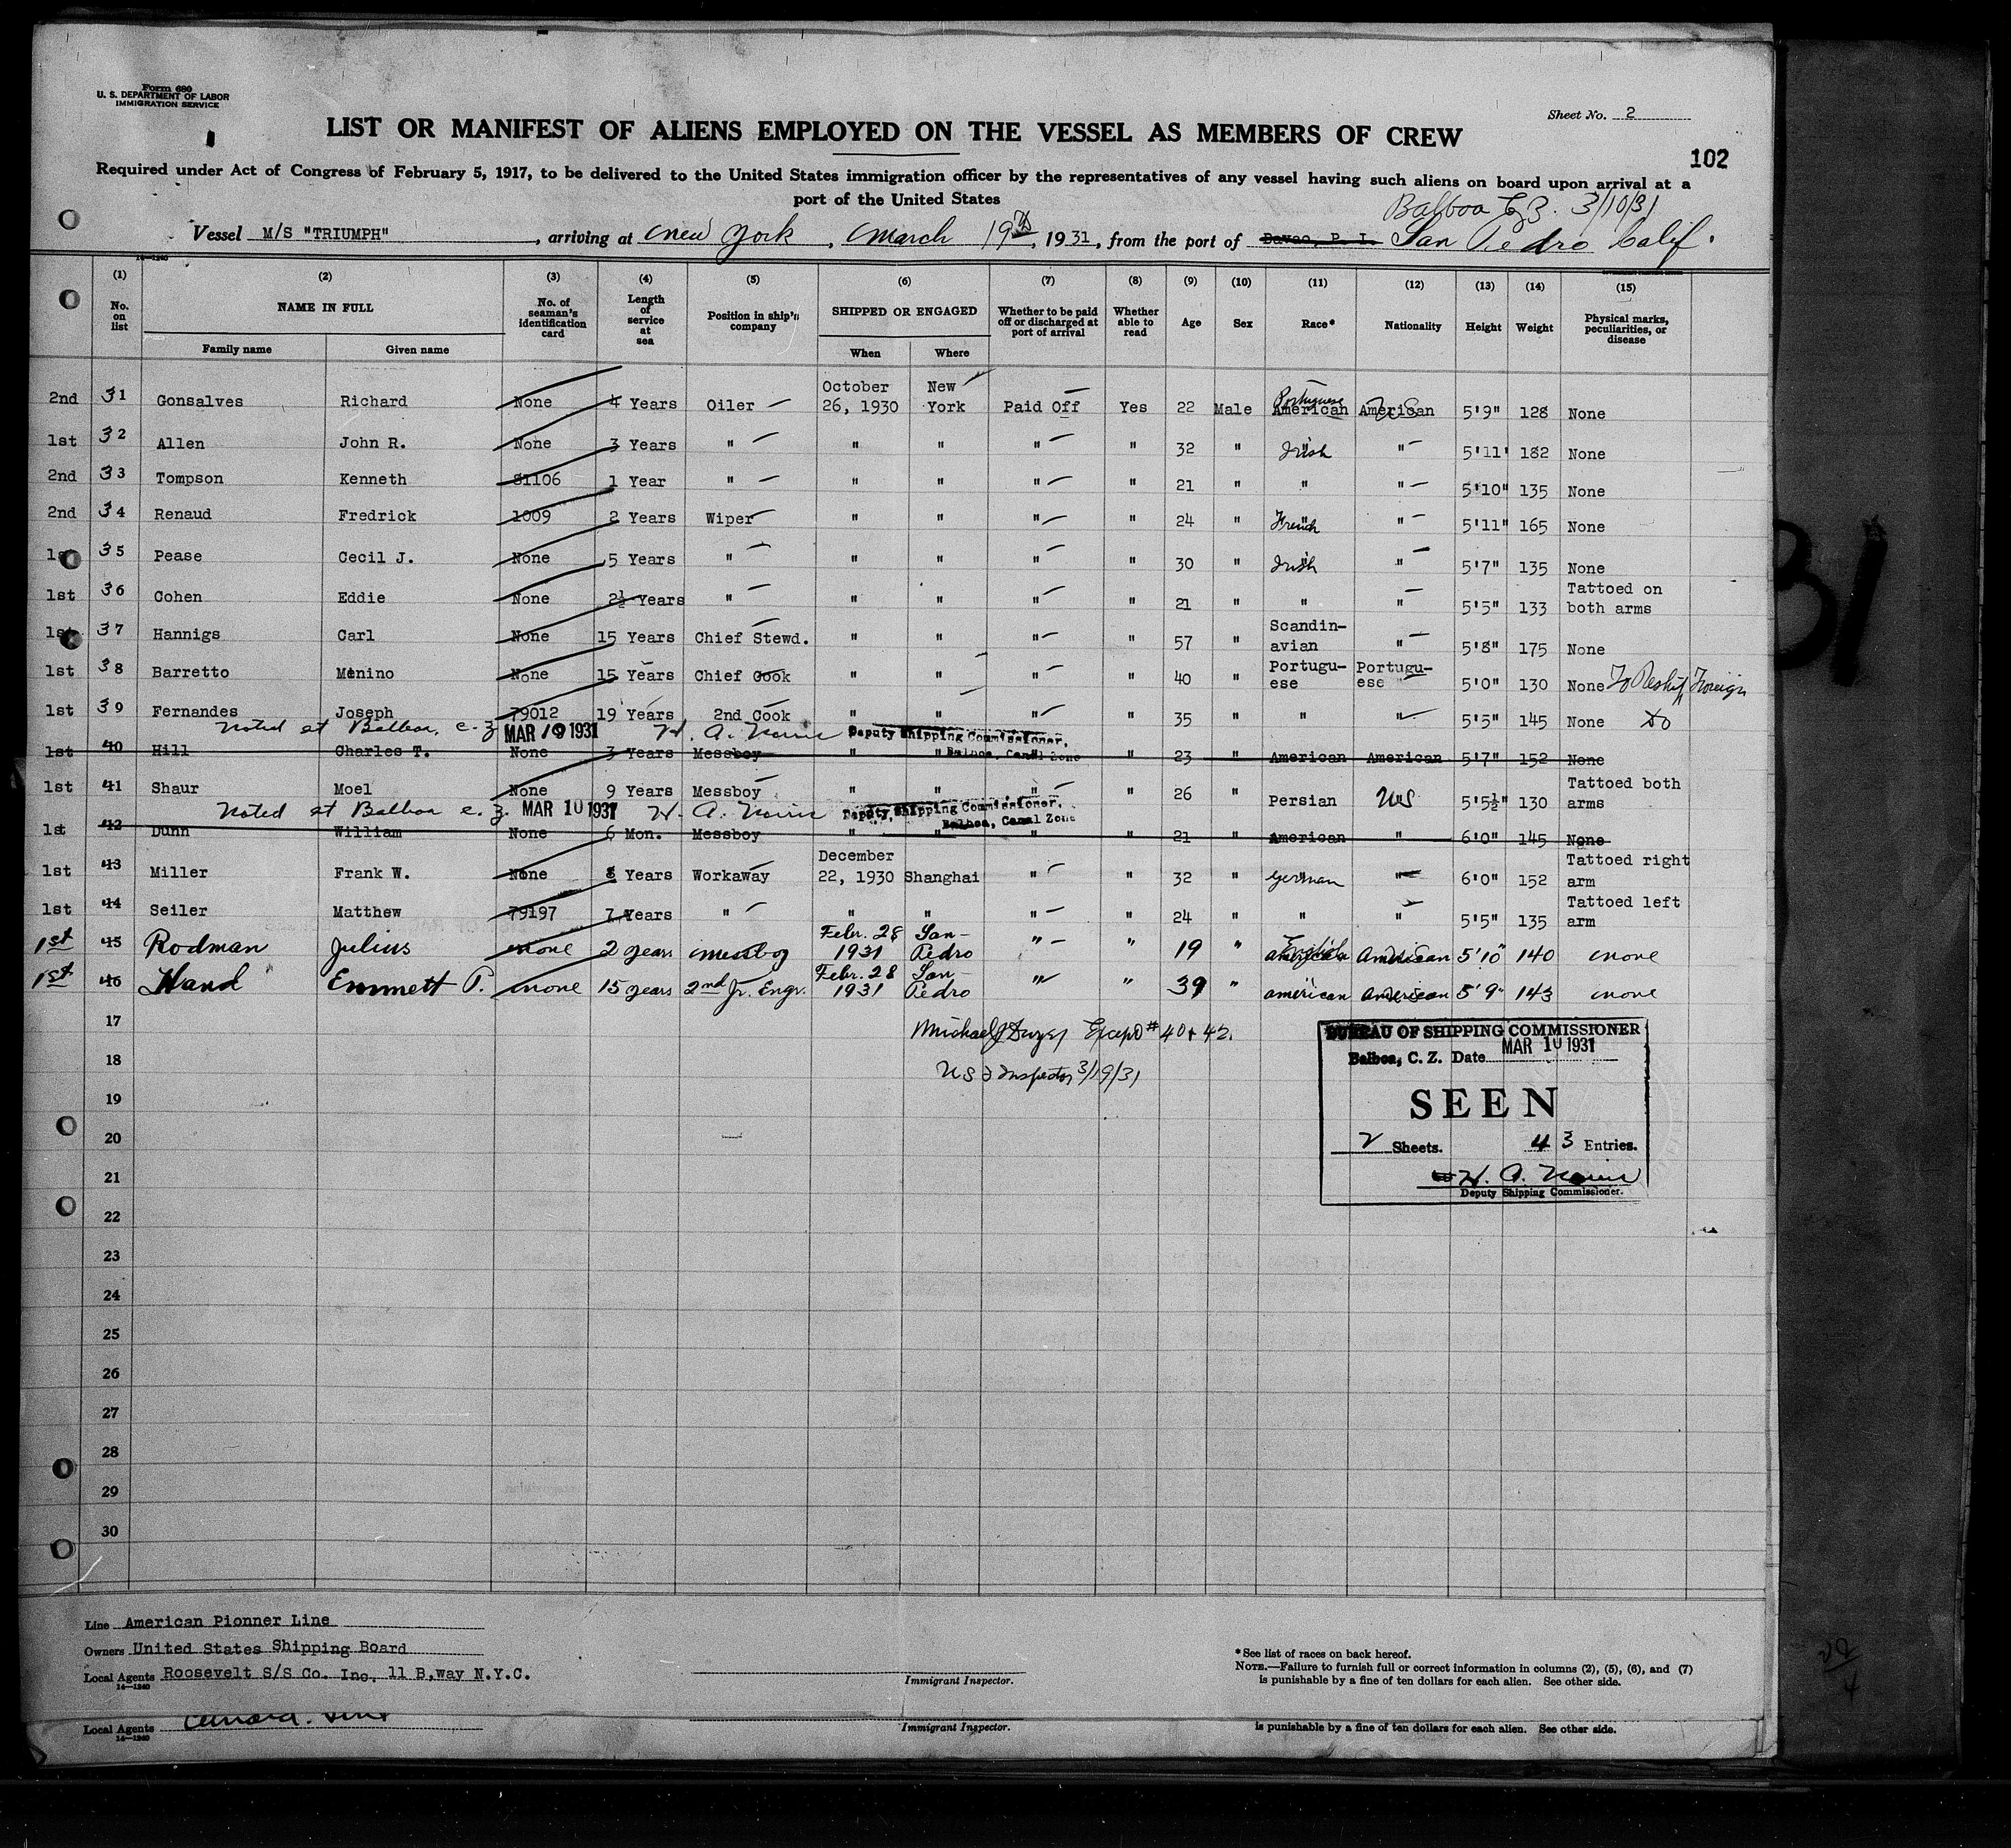 Form 680
U. S. DEPARTMENT OF LABOR
IMMIGRATION SERVICE
Sheet No. 2
LIST OR MANIFEST OF ALIENS EMPLOYED ON THE VESSEL AS MEMBERS OF CREW
102
Required under Act of Congress of February 5, 1917, to be delivered to the United States immigration officer by the representatives of any vessel having such aliens on board upon arrival at a
port of the United States
Balboa C.Z. 3/10/31
Vessel M/S "TRIUMPH", arriving at New York, March 19th, 1931, from the port of Davao, P. I. San Pedro Calif.
(1) (2) (3) (4) (5) (6) (7) (8) (9) (10) (11) (12) (13) (14) (15)
No. on list NAME IN FULL Family name Given name No. of seaman's identification card Length of service at sea Position in ship's company SHIPPED OR ENGAGED When Where Whether to be paid off or discharged at port of arrival Whether able to read Age Sex Race* Nationality Height Weight Physical marks, peculiarities, or disease
2nd 31 Gonsalves Richard None 4 Years Oiler October 26, 1930 New York Paid Off Yes 22 Male American Portuguese American US 5'9" 128 None
1st 32 Allen John R. None 3 Years " " " " " 32 " Irish " 5'11' 182 None
2nd 33 Tompson Kenneth 81106 1 Year " " " " " 21 " " " 5'10" 135 None
2nd 34 Renaud Fredrick 1009 2 Years Wiper " " " " 24 " French " 5'11" 165 None
1st 35 Pease Cecil J. None 5 Years " " " " " 30 " Irish " 5'7" 135 None
1st 36 Cohen Eddie None 2½ Years " " " " " 21 " " " 5'5" 133 Tattoed on both arms
1st 37 Hannigs Carl None 15 Years Chief Stewd. " " " " 57 " Scandin-avian " 5'8" 175 None
1st 38 Barretto Menino None 15 Years Chief Cook " " " " 40 " Portugu-ese Portugu-ese 5'0" 130 None To Reship Foreign
1st 39 Fernandes Joseph 79012 19 Years 2nd Cook " " " " 35 " " " 5'5" 145 None Do
Noted at Balboa, C. Z. MAR 10 1931 H. A. Deputy Shipping Commissioner, Balboa, Canal Zone
1st 40 Hill Charles T. None 3 Years Messboy " " " " 23 " American American 5'7" 152 None
1st 41 Shaur Moel None 9 Years Messboy " " " " 26 " Persian US 5'5½" 130 Tattoed both arms
Noted at Balboa C. Z. MAR 10 1931 H. A. Deputy Shipping Commissioner, Balboa, Canal Zone
1st 42 Dunn William None 6 Mon. Messboy " " " 21 " American " 6'0" 145 None
1st 43 Miller Frank W. None 8 Years Workaway December 22, 1930 Shanghai " " 32 " German " 6'0" 152 Tattoed right arm
1st 44 Seiler Matthew 79197 7 Years " " " " " 24 " " " 5'5" 135 Tattoed left arm
1st 45 Rodman Julius none 2 years messboy Febr. 28 1931 San-Pedro " " 19 " American English American 5'10" 140 none
1st 46 Hand Emmett P. none 15 years 2nd Jr. Engr. Febr. 28 1931 San-Pedro " " 39 " american american 5'9" 143 none
17
Michael Except # 40 + 42.
18
US Inspector 3/19/31
BUREAU OF SHIPPING COMMISSIONER
Balboa, C. Z. Date MAR 10 1931
SEEN
2 Sheets. 43 Entries.
H. A.
Deputy Shipping Commissioner.
19
20
21
22
23
24
25
26
27
28
29
30
Line American Pionner Line
Owners United States Shipping Board
Local Agents Roosevelt S/S Co. Inc. 11 B,way N.Y.C.
14—1240
Immigrant Inspector.
*See list of races on back hereof.
NOTE.—Failure to furnish full or correct information in columns (2), (5), (6), and (7)
is punishable by a fine of ten dollars for each alien. See other side.
Local Agents
14—1240
Immigrant Inspector.
is punishable by a fine of ten dollars for each alien. See other side.
31